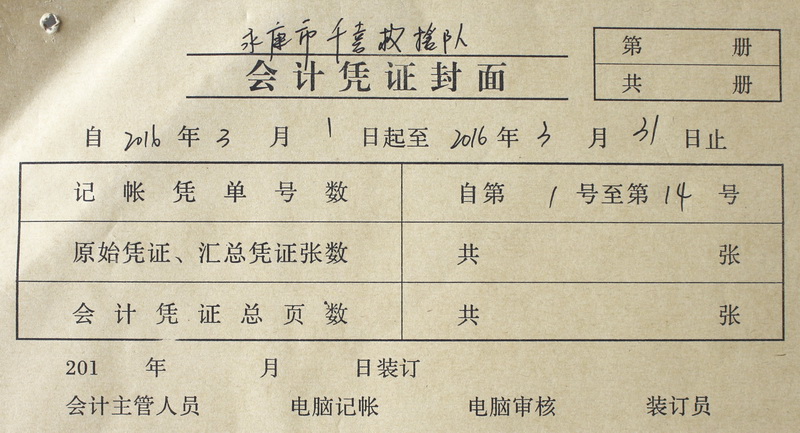 永康市千喜救援队
会计凭证封面
第 册
共 册
自 2016 年 3 月 1 日起至 2016 年 3 月 31 日止
记帐凭单号数 自第 1 号至第 14 号
原始凭证、汇总凭证张数 共 张
会计凭证总页数 共 张
201 年 月 日装订
会计主管人员 电脑记帐 电脑审核 装订员